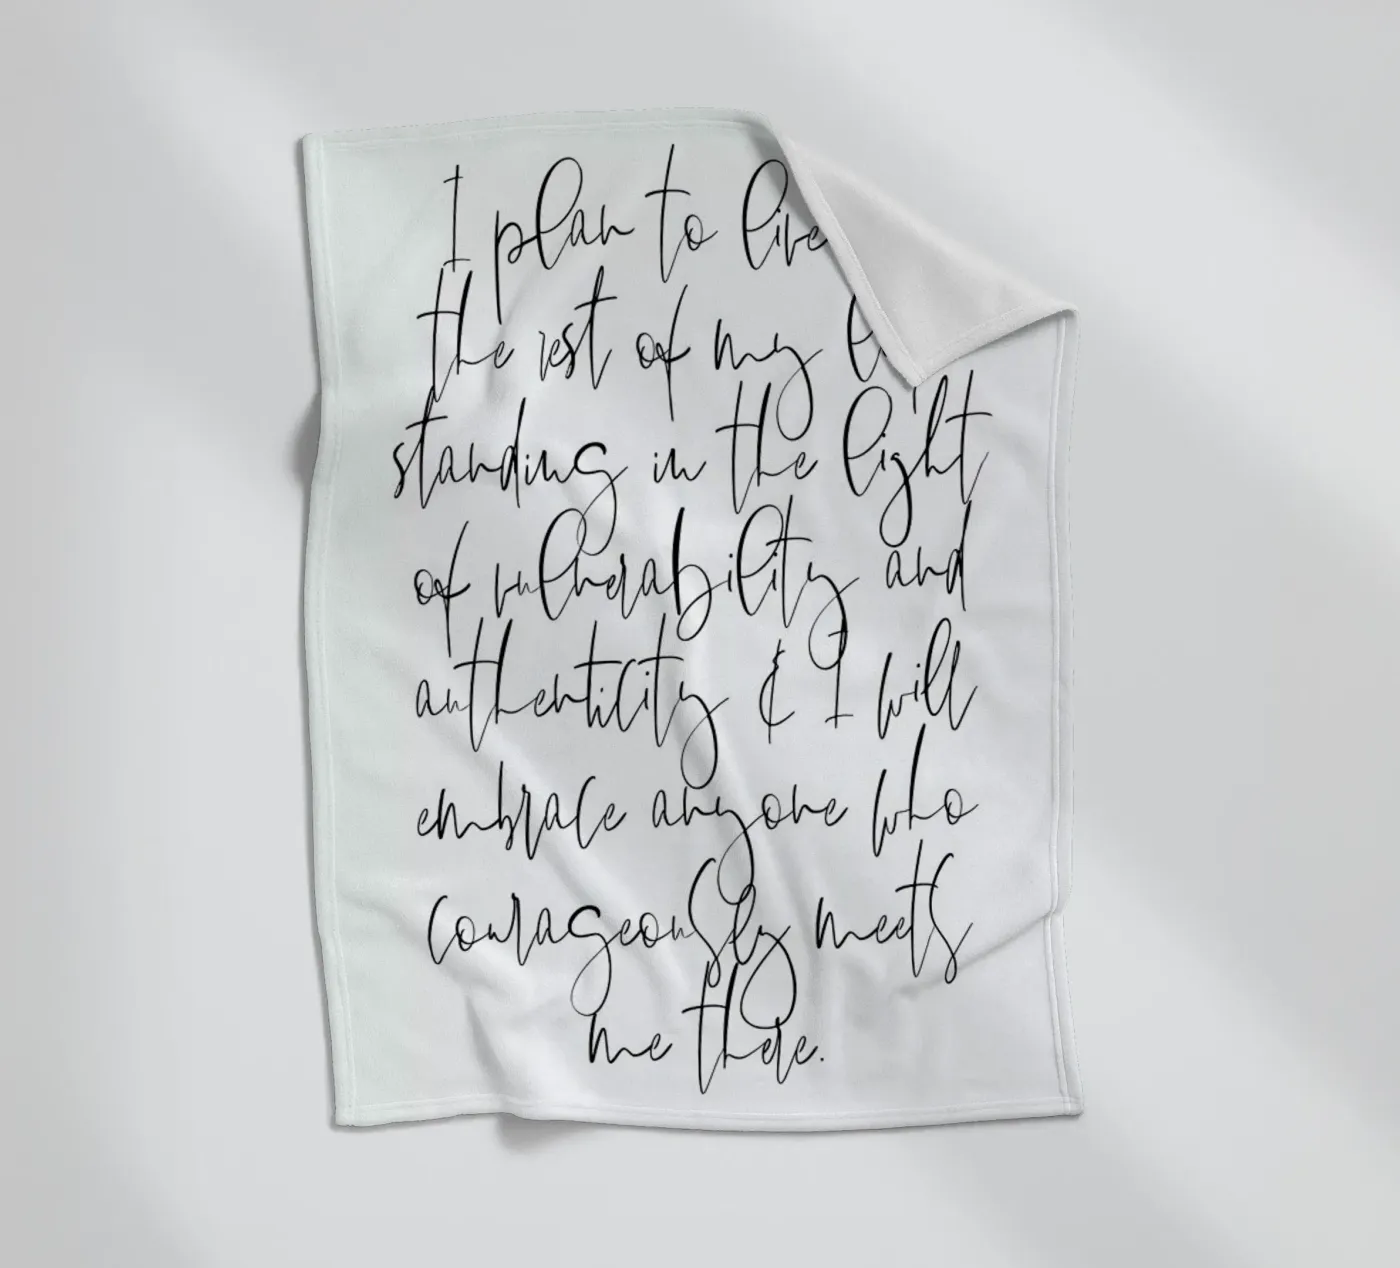 I plan to live
the rest of my
standing in the light
of vulnerability and
authenticity & I will
embrace anyone who
courageously meets
me there.